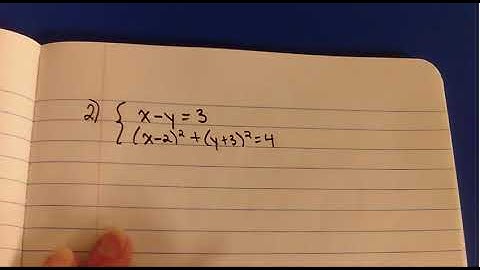 2) { x-y=3
(x-2)²+(y+3)²=4